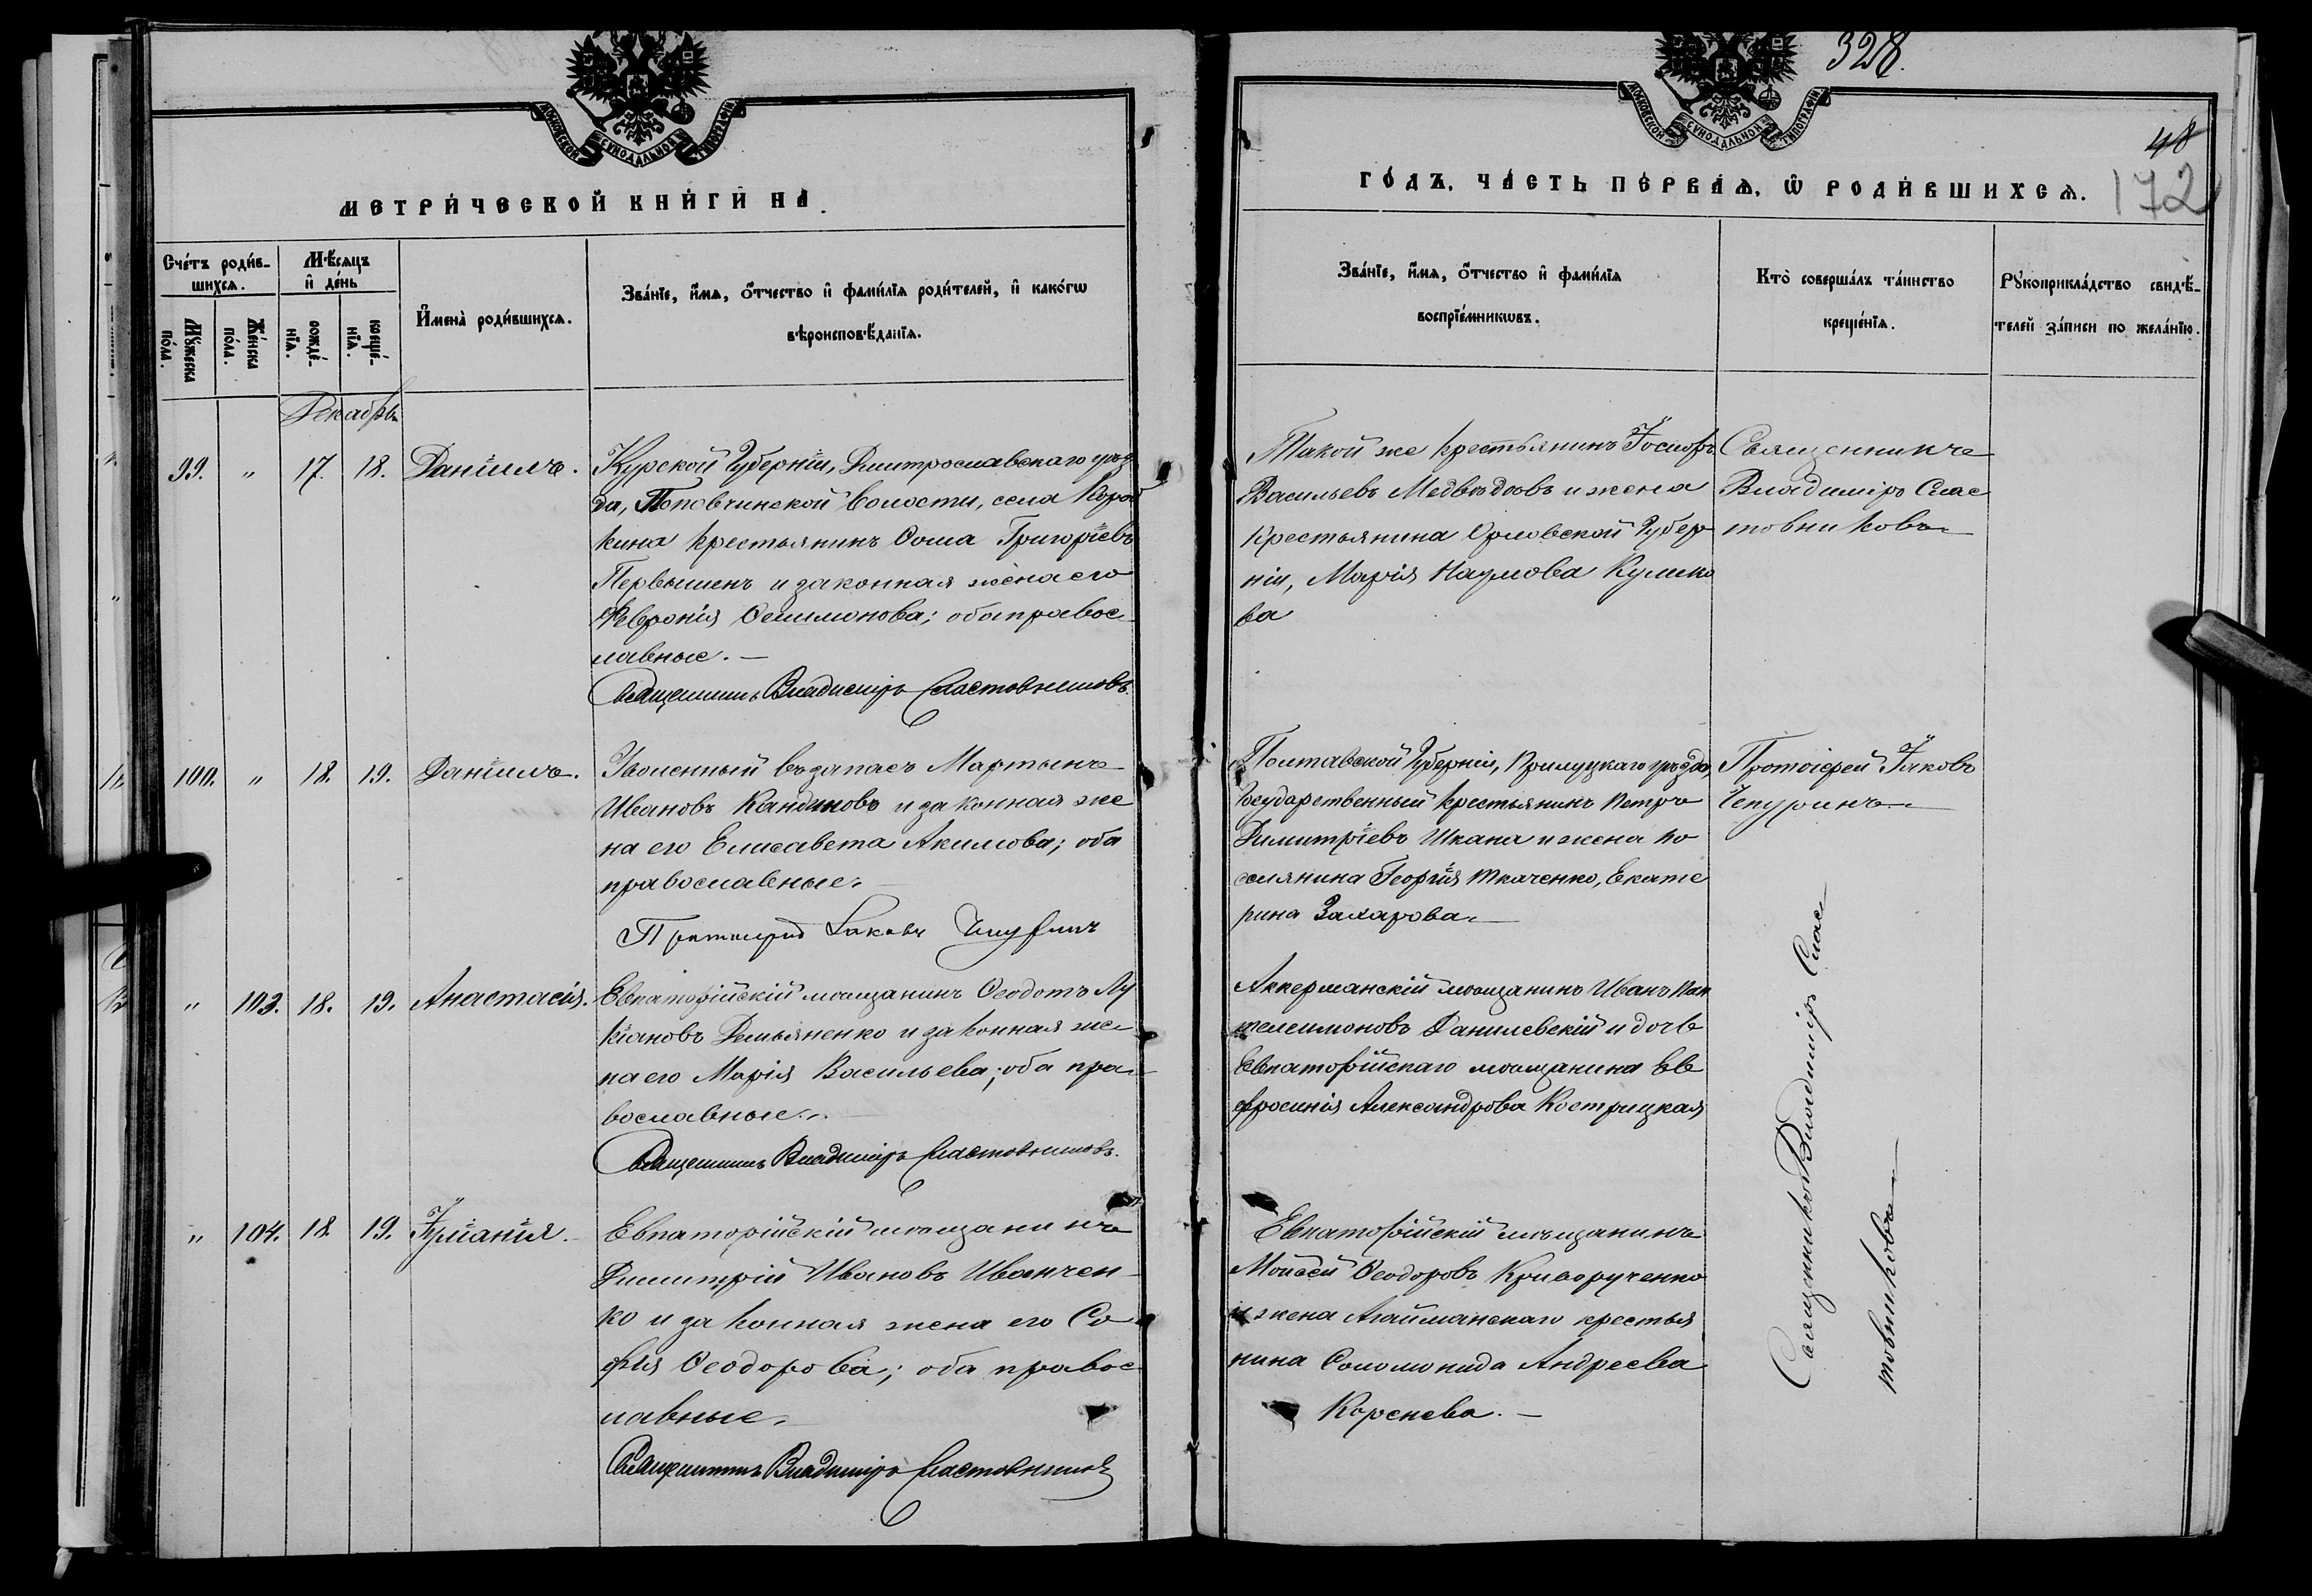 328.
МОСКОВСКОЙ СѴНОДАЛЬНОЙ ТИПОГРАФІИ
МОСКОВСКОЙ СѴНОДАЛЬНОЙ ТИПОГРАФІИ
48
172
МЕТРИ́ЧЕСКОЙ КНИ́ГИ НА
ГО́ДЪ, ЧА́СТЬ ПЕ́РВАѦ, Ѡ РОДИ́ВШИХСѦ.
Сче́тъ роди́в-
шихсѧ.
Мꙋжеска по́ла.
Же́нска по́ла.
Мѣ́сѧцъ
и҆ де́нь
рожде́-
нїѧ.
креще́-
нїѧ.
И҆мена̀ роди́вшихсѧ.
Зва́нїе, и҆́мѧ, ѻ҆́тчество и҆ фами́лїѧ роди́телей, и҆ како́гѡ
вѣроисповѣ́данїѧ.
Зва́нїе, и҆́мѧ, ѻ҆́тчество и҆ фами́лїѧ
воспрїе́мникѡвъ.
Кто̀ соверша́лъ та́инство
креще́нїѧ.
Рꙋкоприкла́дство свидѣ́-
телей за́писи по жела́нїю.
Декабрь
99. " 17. 18. Даніилъ.
Курской Губерніи, Дмитрославскаго уѣз
да, Поповчинской волости, села Короб
кина крестьянинъ Ѳома Григоріевъ
Первышенъ и законная жена его
Феврония Филимонова; оба правос
лавные. —
Священникъ Владиміръ Сластовниковъ.
Такой же крестьянинъ Іосифъ
Васильевъ Медвѣдовъ и жена
крестьянина Орловской Губер
ніи, Марія Наумова Кулико
ва
Священникъ
Владиміръ Слас
товниковъ
100. " 18. 19. Даніилъ.
Уволенный въ запасъ Мартынъ
Ивановъ Кандиковъ и законная же
на его Елисавета Акимова; оба
православные.
Протоіерей Іаковъ Чепуринъ
Полтавской Губерніи, Прилуцкаго уѣзда,
Государственный крестьянинъ Петръ
Димитріевъ Шкапа и жена по
селянина Георгія Ткаченко, Екате
рина Захарова.
Протоіерей Іаковъ
Чепуринъ
" 103. 18. 19. Анастасія.
Евпаторійскій мѣщанинъ Ѳеодотъ Лу
кіановъ Демьяненко и законная же
на его Марія Васильева; оба пра
вославные.
Священникъ Владиміръ Сластовниковъ.
Аккерманскій мѣщанинъ Иванъ Пан
телеимоновъ Данилевскій и дочь
Евпаторійскаго мѣщанина Ев
фросинія Александрова Кострицкая
Священникъ Владиміръ Слас
товниковъ
" 104. 18. 19. Іуліанія.
Евпаторійскій мѣщанинъ
Димитрій Ивановъ Иванчен-
ко и законная жена его Со
фія Ѳеодорова; оба правос
лавные.
Священникъ Владиміръ Сластовниковъ
Евпаторійскій мѣщанинъ
Мойсей Ѳеодоровъ Криворученко
и жена Агайманскаго крестья
нина Соломонида Андреева
Коренева. —